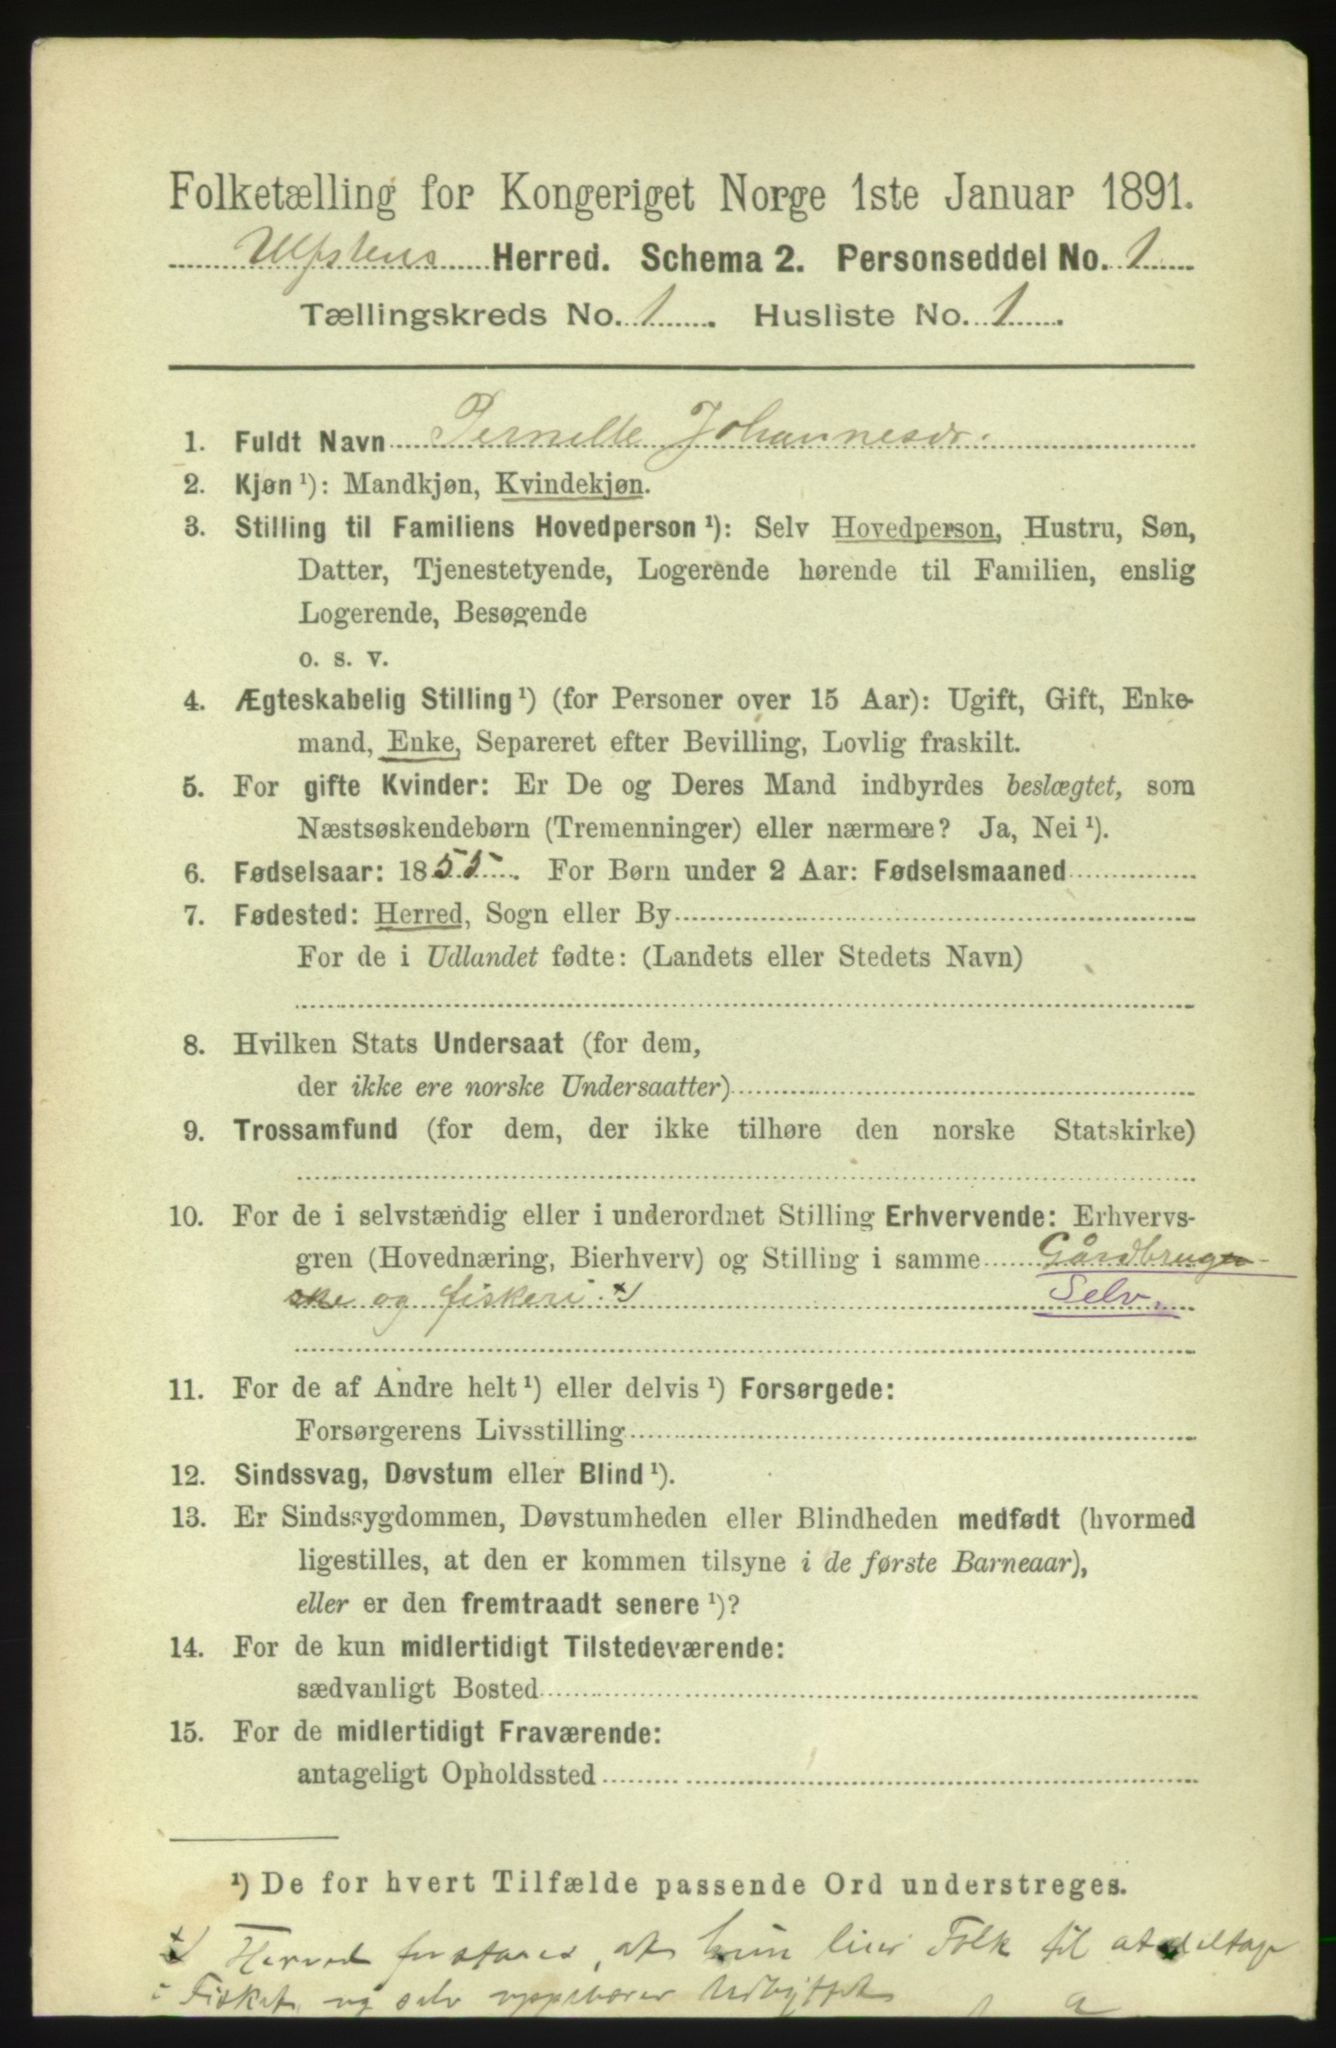 Folketælling for Kongeriget Norge 1ste Januar 1891.
Ulfstens Herred. Schema 2. Personseddel No. 1
Tællingskreds No. 1. Husliste No. 1.
1. Fuldt Navn Pernille Johannesdr.
2. Kjøn ¹): Mandkjøn, Kvindekjøn.
3. Stilling til Familiens Hovedperson ¹): Selv Hovedperson, Hustru, Søn,
Datter, Tjenestetyende, Logerende hørende til Familien, enslig
Logerende, Besøgende
o. s. v.
4. Ægteskabelig Stilling ¹) (for Personer over 15 Aar): Ugift, Gift, Enke-
mand, Enke, Separeret efter Bevilling, Lovlig fraskilt.
5. For gifte Kvinder: Er De og Deres Mand indbyrdes beslægtet, som
Næstsøskendebørn (Tremenninger) eller nærmere? Ja, Nei ¹).
6. Fødselsaar: 1855. For Børn under 2 Aar: Fødselsmaaned
7. Fødested: Herred, Sogn eller By
For de i Udlandet fødte: (Landets eller Stedets Navn)
8. Hvilken Stats Undersaat (for dem,
der ikke ere norske Undersaatter)
9. Trossamfund (for dem, der ikke tilhøre den norske Statskirke)
10. For de i selvstændig eller i underordnet Stilling Erhvervende: Erhvervs-
gren (Hovednæring, Bierhverv) og Stilling i samme Gårdbruger-
ske og fiskeri. x)
Selv.
11. For de af Andre helt ¹) eller delvis ¹) Forsørgede:
Forsørgerens Livsstilling
12. Sindssvag, Døvstum eller Blind ¹).
13. Er Sindssygdommen, Døvstumheden eller Blindheden medfødt (hvormed
ligestilles, at den er kommen tilsyne i de første Barneaar),
eller er den fremtraadt senere ¹)?
14. For de kun midlertidigt Tilstedeværende:
sædvanligt Bosted
15. For de midlertidigt Fraværende:
antageligt Opholdssted
¹) De for hvert Tilfælde passende Ord understreges.
x) Herved forstaaes, at hun leier Folk til at deltage
i Fisket, og selv oppebærer Udbyttet